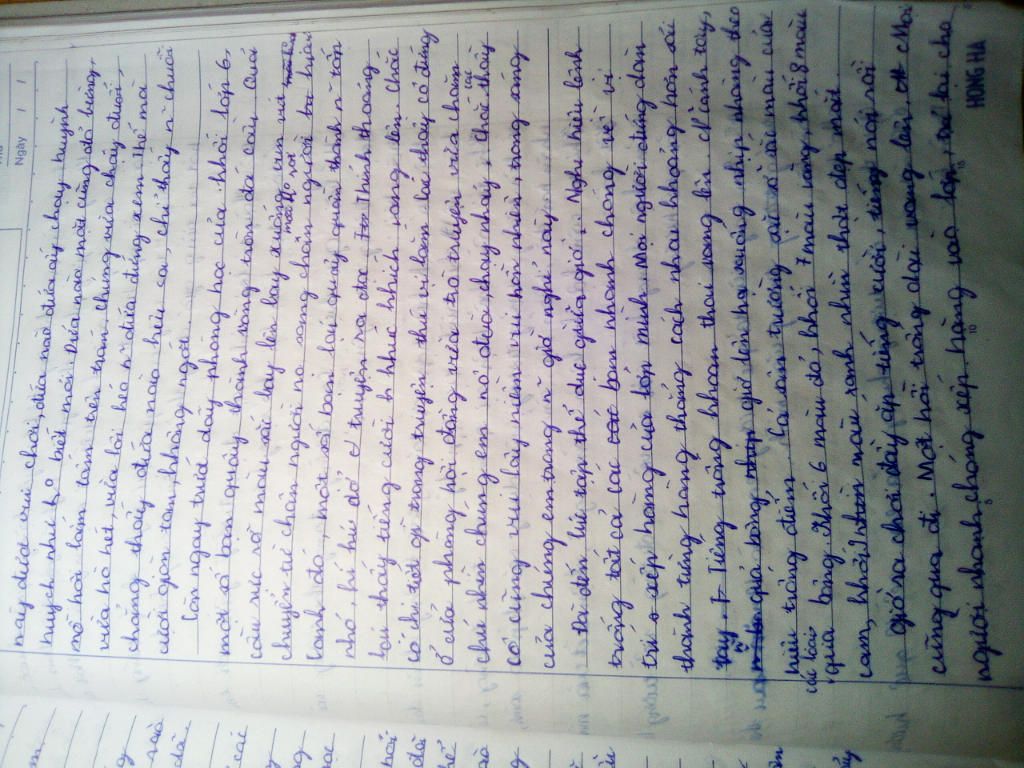 Ngày / /
này được vui chơi, đứa nào đứa ấy chạy huỳnh
huỵch như bò bứt mới. Đứa nào mặt cũng đỏ bừng,
mồ hôi lấm tấm trên trán, chúng vừa chạy đuổi,
vừa hò hét, vừa lôi kéo n~ đứa đứng xem. Thế mà
chẳng thấy đứa nào kêu ca, chỉ thấy n~ chuỗi
cười giòn tan, không ngớt.
Còn ngay trước dãy phòng học của khối lớp 6,
một số bạn quây thành vòng tròn đá cầu. Quả
cầu sặc sỡ màu sắc bay lên bay xuống
chuyền từ chân người nọ sang chân người kia
Cạnh đó, một số bạn lại quây quần thành n~ tốp
nhỏ, hí húi đọc truyện. Thỉnh thoảng
lại thấy tiếng cười khúc khích vang lên. Chắc
có chi tiết gì trong truyện thú vị lắm
Ở cửa phòng hội đồng vừa trò truyện vừa chăm
chú nhìn chúng em nô đùa, chạy nhảy, chắc các thầy
cô cũng vui lây niềm vui hồn nhiên, trong sáng
của chúng em trong n~ giờ nghỉ này.
Đã đến lúc tập thể dục giữa giờ. Nghe hiệu lệnh
trống tất cả các bạn nhanh chóng về vị
trí xếp hàng của lớp mình. Mọi người đứng dàn
thành từng hàng thẳng cách nhau khoảng hơn sải
tay. Tiếng trống khoan thai vang lên. N~ cánh tay,
quả bông giơ lên hạ xuống nhịp nhàng theo
hiệu trống điểm. Cả sân trường rực rỡ sắc màu của các loại
quả bông. Khối 6 màu đỏ, khối 7 màu vàng, khối 8 màu
cam, khối 9 màu xanh nhìn thật đẹp mắt.
Giờ ra chơi đầy ắp tiếng cười, tiếng nói rồi
cũng qua đi. Một hồi trống dài vang lên. Mọi
người nhanh chóng xếp hàng vào lớp, trả lại cho
HONG HA